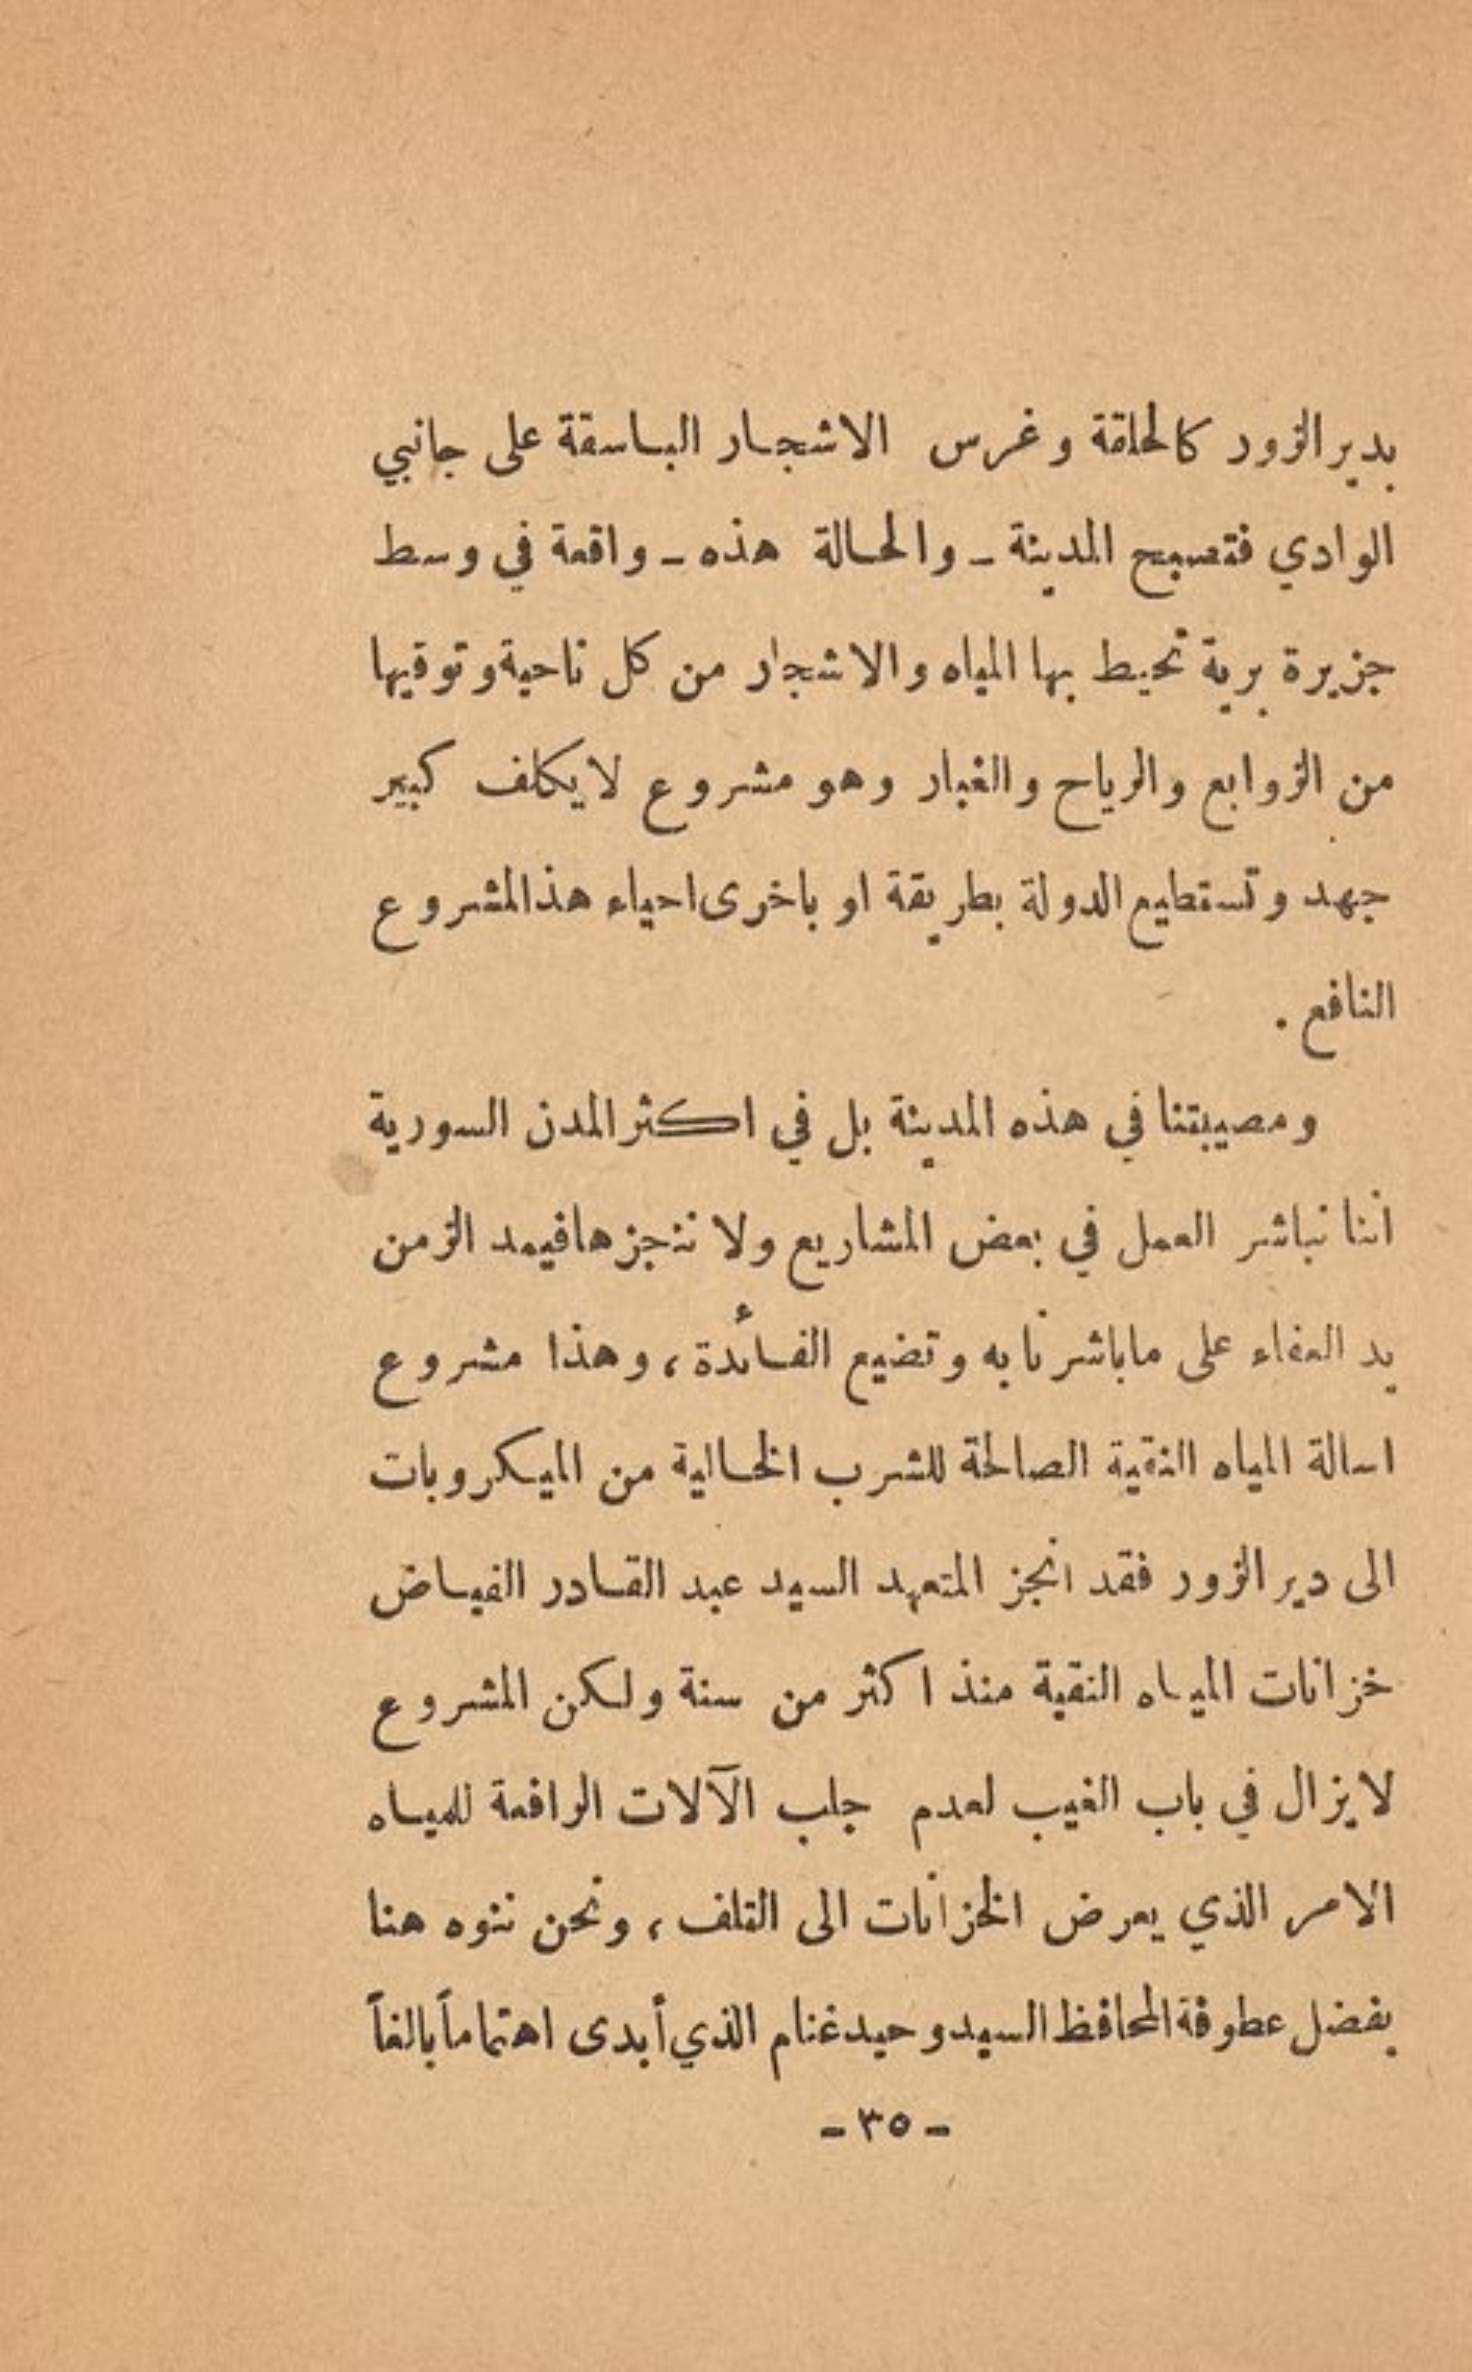 بديرالزور كالحلقة وغرس الاشجار الباسقة على جانبي
الوادي فتصبح المدينة ـ والحالة هذه ـ واقعة في وسط
جزيرة برية تحيط بها المياه والاشجار من كل ناحية وتوقيها
من الزوابع والرياح والغبار وهو مشروع لايكلف كبير
جهد وتستطيع الدولة بطريقة او باخرى احياء هذالمشروع
النافع .
ومصيبتنا في هذه المدينة بل في اكثر المدن السورية
اننا نباشر العمل في بعض المشاريع ولا ننجزها فيمد الزمن
يد العفاء على ماباشرنا به وتضيع الفائدة ، وهذا مشروع
اسالة المياه النقية الصالحة للشرب الخالية من الميكروبات
الى دير الزور فقد انجز المتعهد السيد عبد القادر الفياض
خزانات المياه النقية منذ اكثر من سنة ولكن المشروع
لايزال في باب الغيب لعدم جلب الآلات الرافعة للمياه
الامر الذي يعرض الخزانات الى التلف ، ونحن ننوه هنا
بفضل عطوفة المحافظ السيد وحيد غنام الذي أبدى اهتماماً بالغاً
ـ ٣٥ ـ